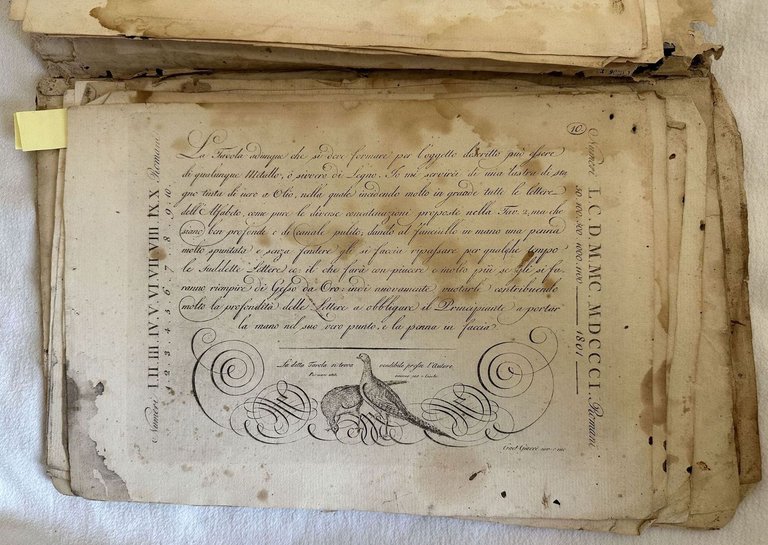 10
La Tavola adunque che si dee formare per l'oggetto descritto può essere
di qualunque Metallo, o sivvero di Legno. Io mi servirei di una lastra di sta,
gno tinta di nero a Olio, nella quale incidendo molto in grande tutte le lettere
dell'Alfabeto, come pure le diverse concatenazioni proposte nella Tav. 2, ma che
siano ben profonde e di canale pulito, dando al fanciullo in mano una penna
molto spuntata e senza fendere gli si faccia ripassare per qualche tempo
le suddette Lettere ec. il che farà con piacere e molto più se gli si fa,
ranno riempire di Gesso da Oro, indi nuovamente vuotarle contribuendo
molto la profondità delle Lettere a obbligare il Principiante a portar
la mano nel suo vero punto, e la penna in faccia.
La detta Tavola si trova vendibile presso l'Autore
Numeri I. II. III. IV. V. VI. VII. VIII. IX. X Romani
1. 2. 3. 4. 5. 6. 7. 8. 9. 10.
Numeri L. C. D. M. MC. MDCCCI. Romani
50. 100. 500. 1000. 1100. 1801